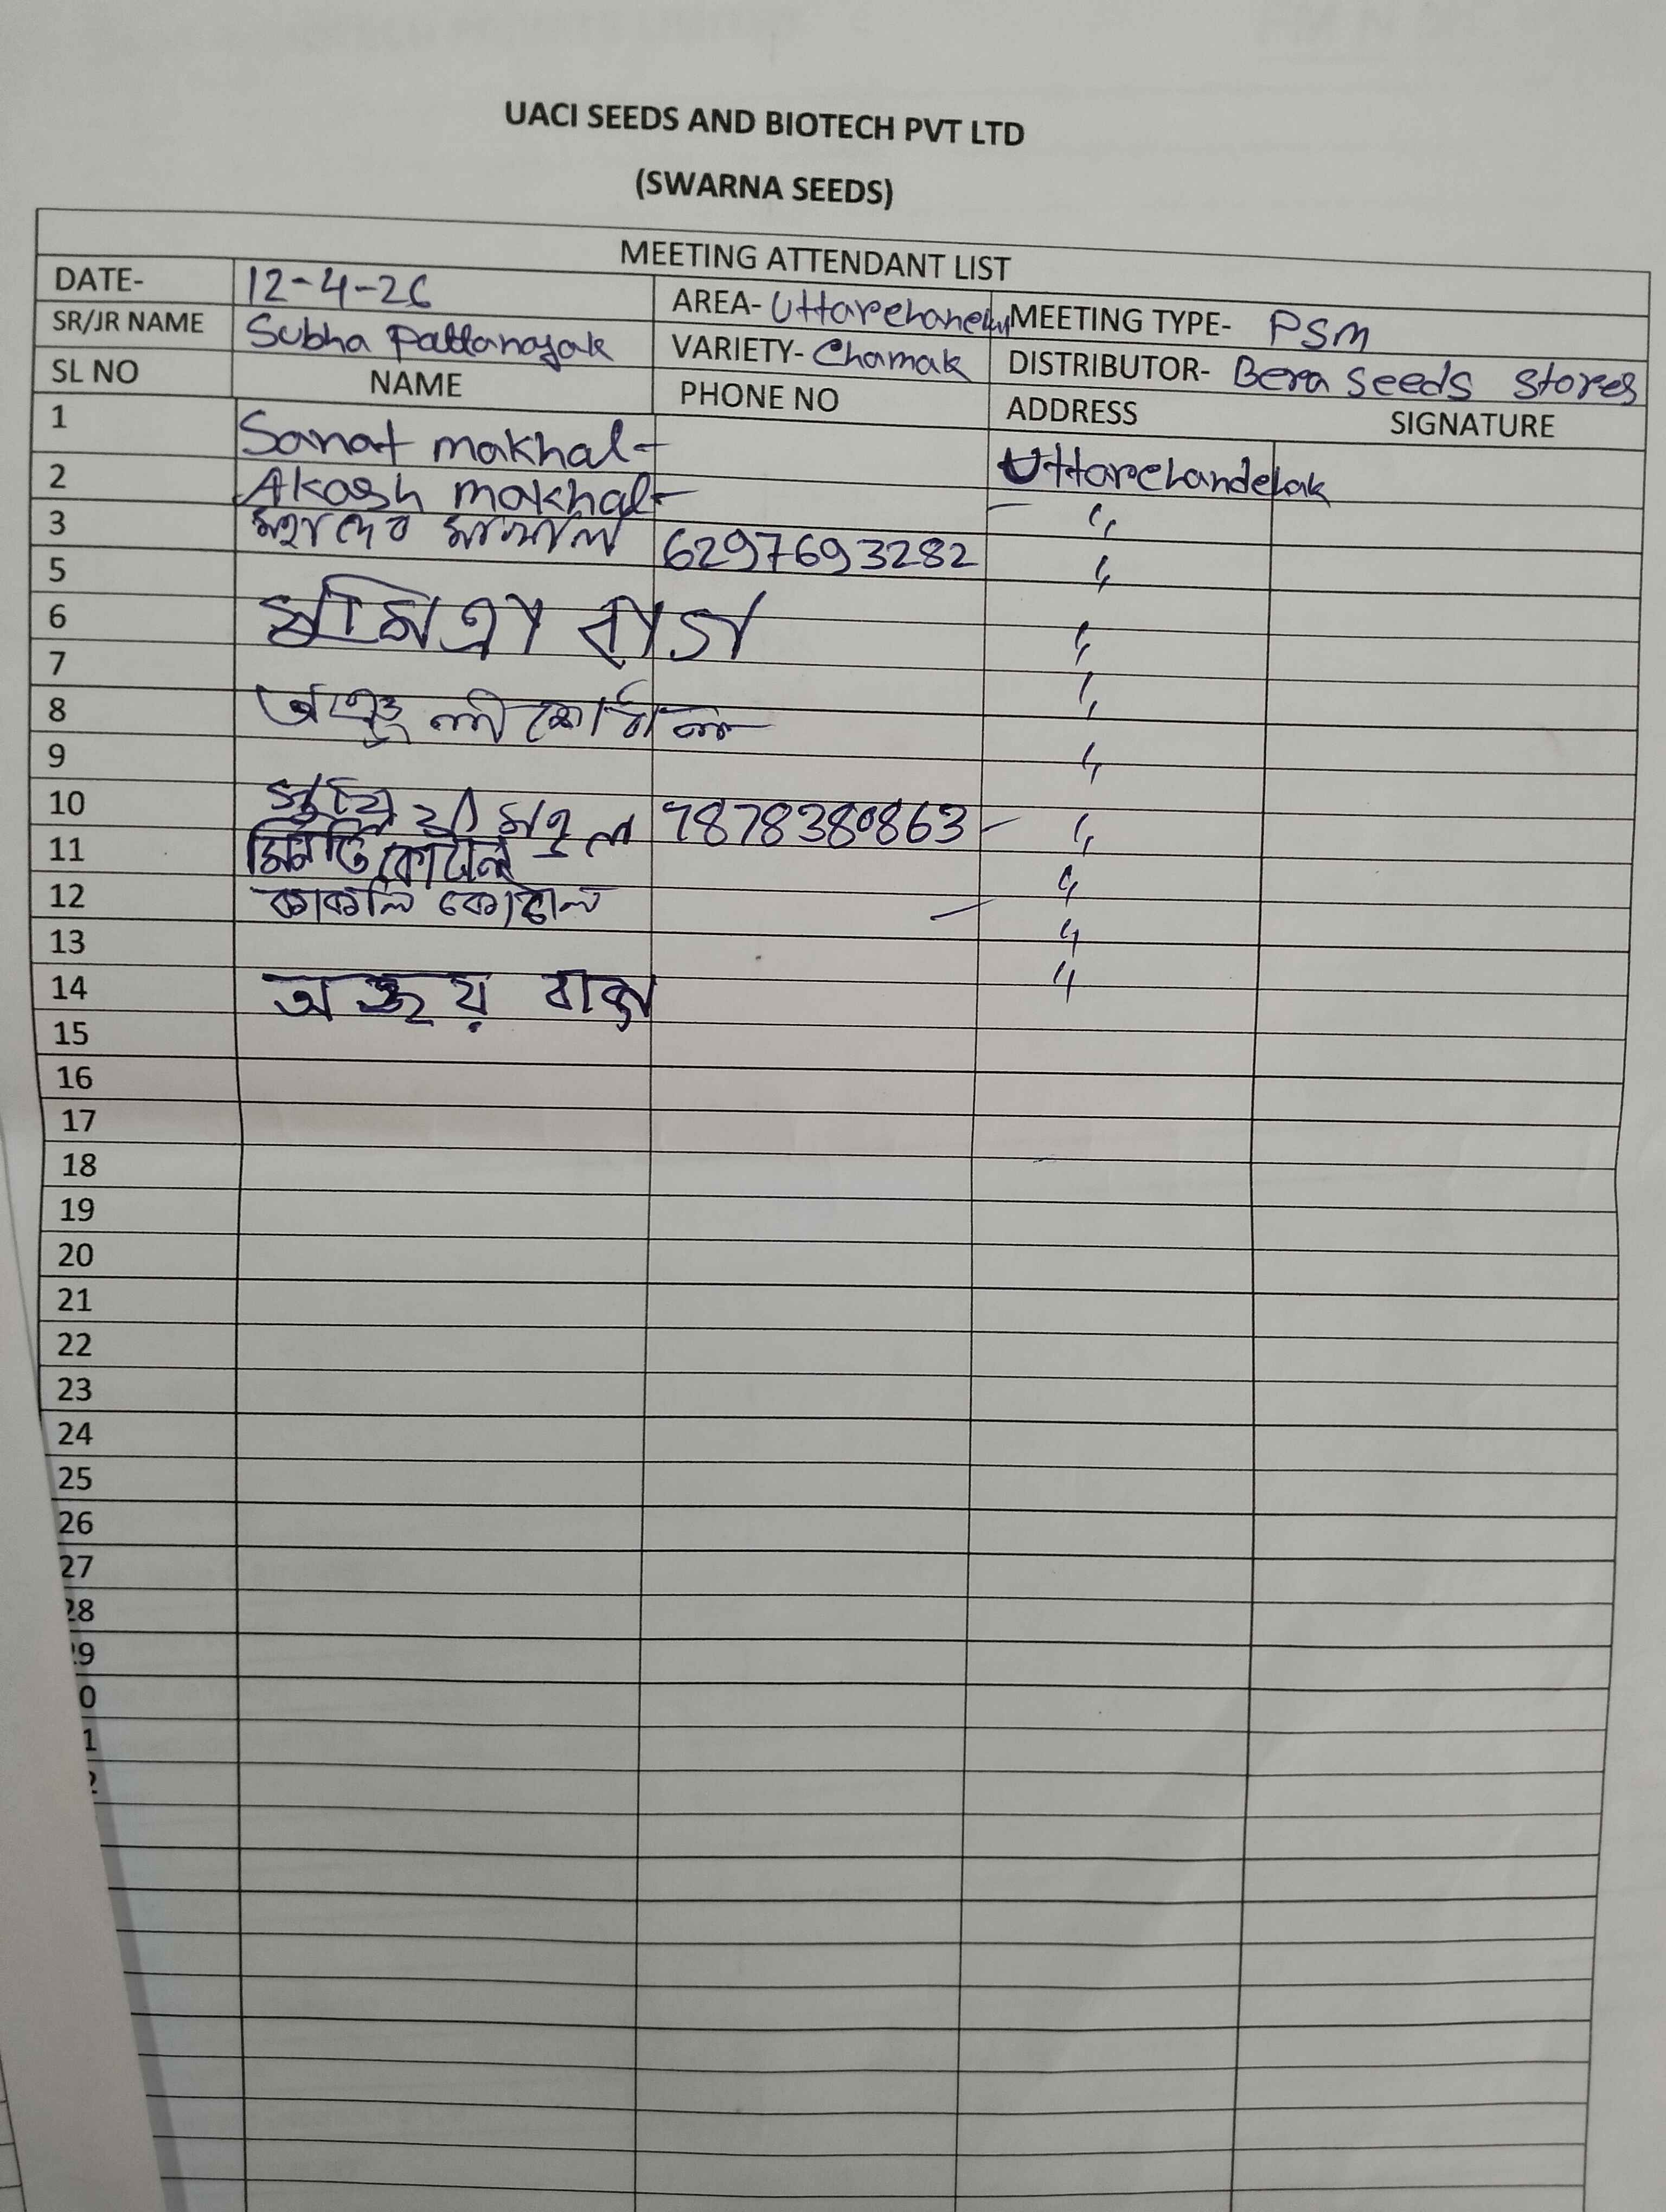 UACI SEEDS AND BIOTECH PVT LTD
(SWARNA SEEDS)
MEETING ATTENDANT LIST
DATE- 12-4-26 AREA- MEETING TYPE- PSM
SR/JR NAME Subha Pattanayak VARIETY- Chamak DISTRIBUTOR- Bera Seeds Stores
SL NO NAME PHONE NO ADDRESS SIGNATURE
1 Sanat makhal-
2 Akash makhal-
3 মহাদেব মাখাল 6297693282 "
5 "
6 বাগ "
7 "
8
9 "
10 7878380863 - "
11 মিনতি কোটাল "
12 কাকলি কোটাল - "
13 "
14 অজয় বাগ
15
16
17
18
19
20
21
22
23
24
25
26
27
28